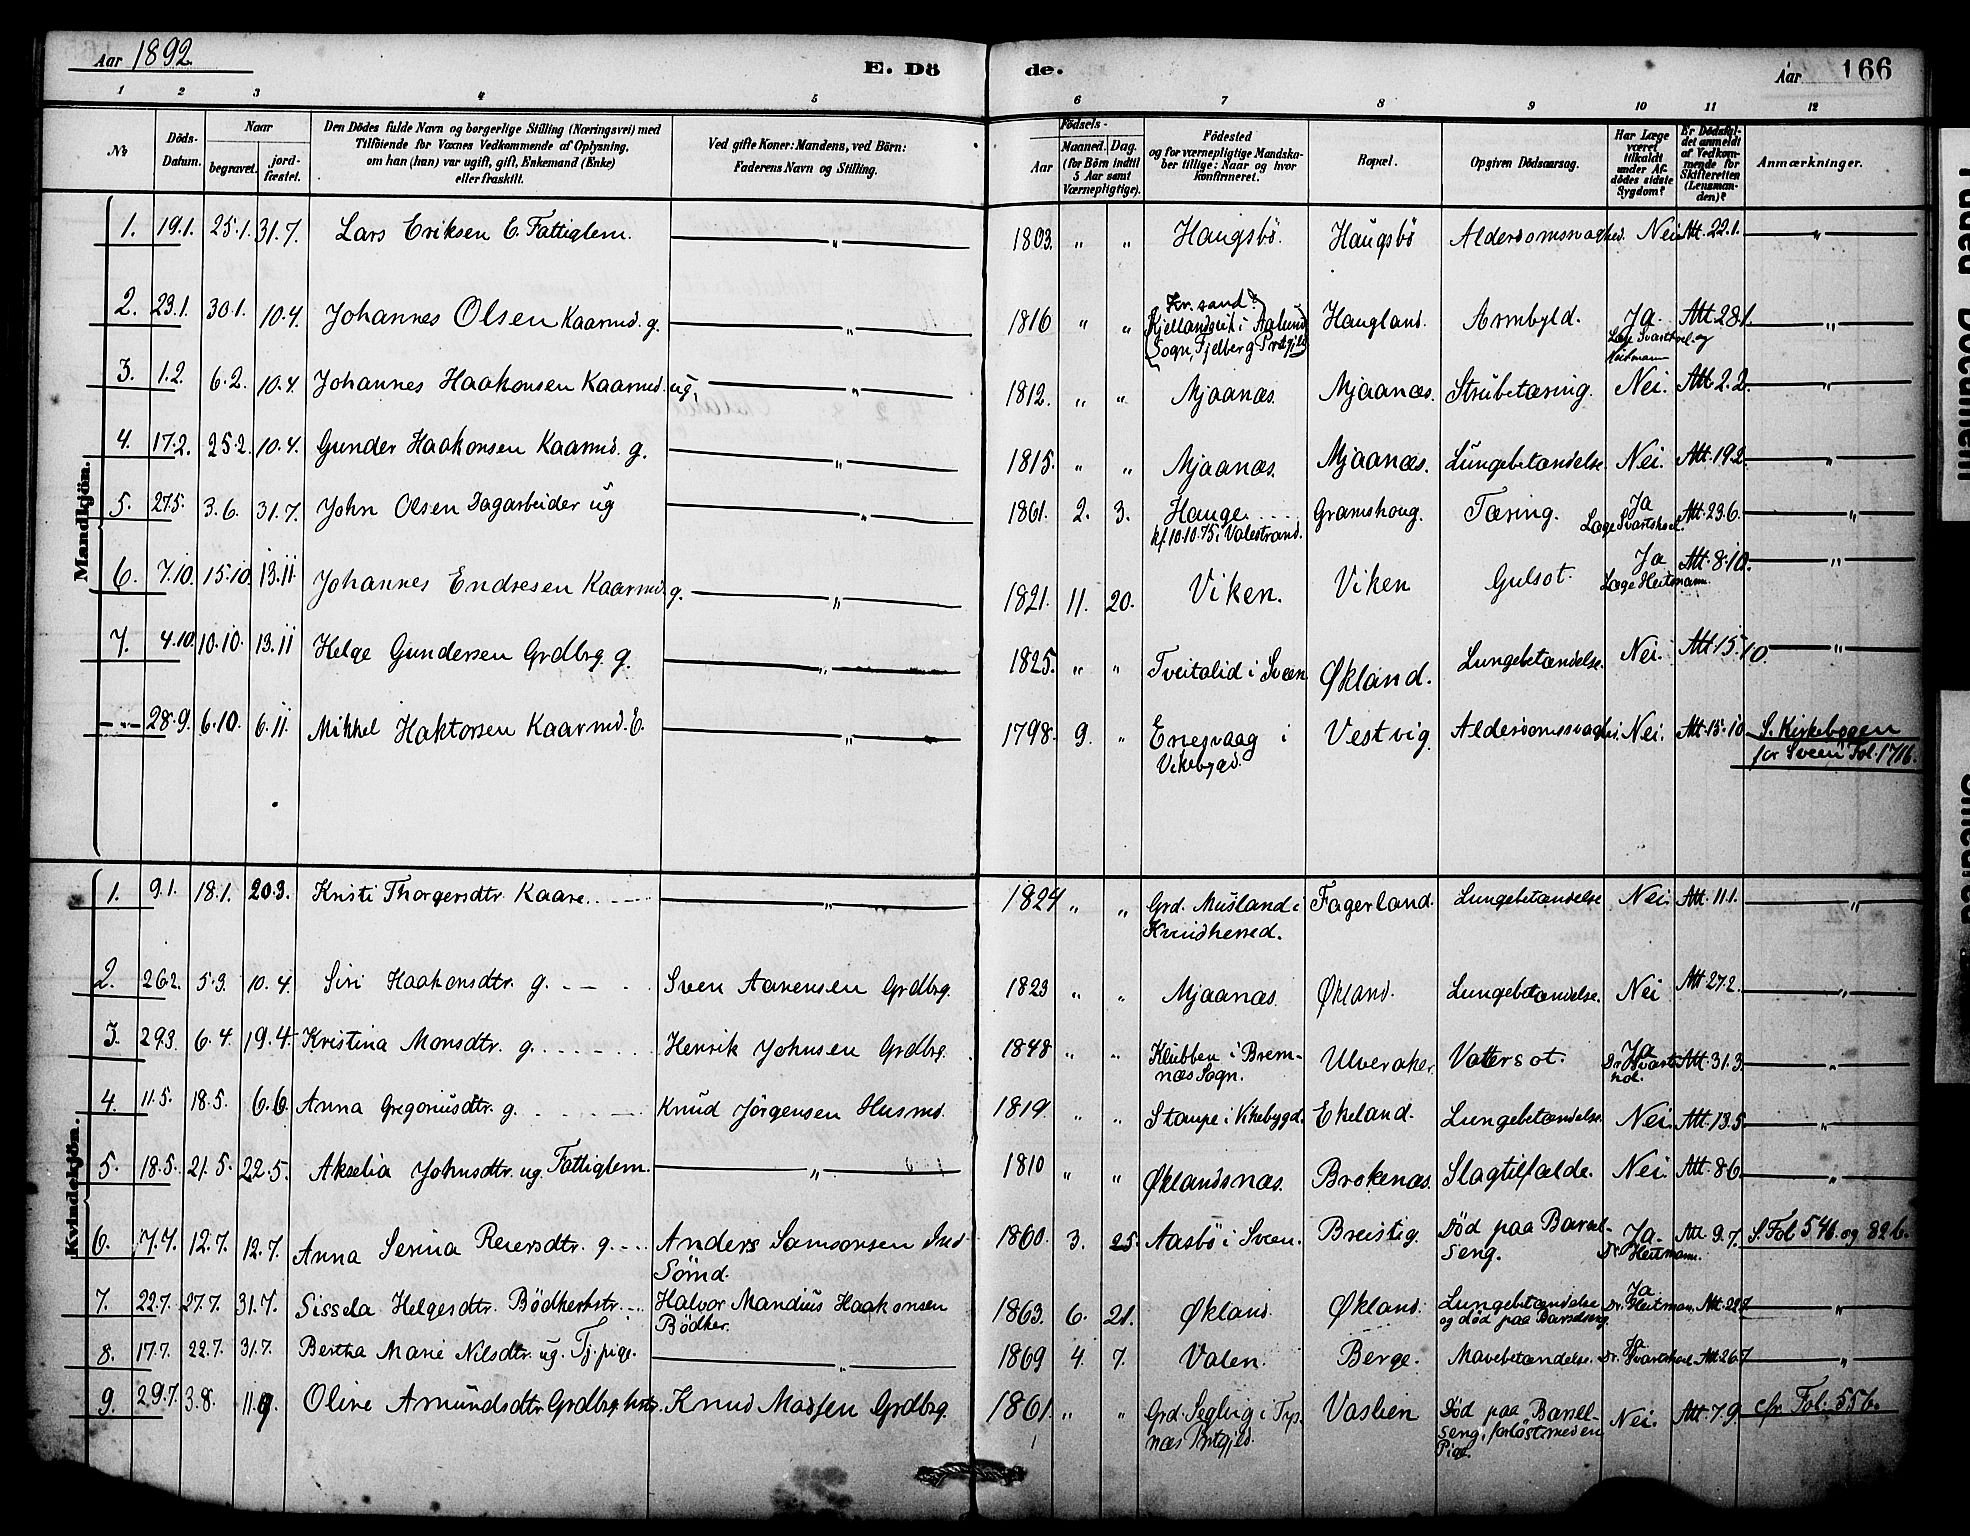 Aar 1892.
E. Dö de.
Aar 166
1 2 3 4 5 6 7 8 9 10 11 12
No
Döds-Datum.
Naar
begravet.
jord-fæstet.
Den Dödes fulde Navn og borgerlige Stilling (Næringsvei) med
Tilföiende for Voxnes Vedkommende af Oplysning,
om han (hun) var ugift, gift, Enkemand (Enke)
eller fraskilt.
Ved gifte Koner: Mandens, ved Börn:
Faderens Navn og Stilling.
Födsels-
Aar
Maaned. Dag.
(for Börn indtil
5 Aar samt
Værnepligtige).
Födested
og for værnepligtige Mandska-
ber tillige: Naar og hvor
konfirmeret.
Bopæl.
Opgiven Dödsaarsag.
Har Læge
været
tilkaldt
under Af-
dödes sidste
Sygdom?
Er Dödsfal-
det anmeldt
af Vedkom-
mende for
Skifteretten
(Lensman-
den)?
Anmærkninger.
Mandkjön.
1. 19.1. 25.1. 31.7. Lars Eriksen E. Fattiglem. " 1803. " " Haugsbö. Haugsbö Alderdomssvaghed. Nei Att. 22.1. "
2. 23.1. 30.1. 10.4. Johannes Olsen Kaarmd. g. " 1816 " " Haugland. Ja. Att 28.1. "
Sogn, Fjelberg Prstgjld
3. 1.2. 6.2. 10.4. Johannes Haakonsen Kaarmd. ug. " 1812. " " Mjaanæs. Mjaanæs. Strubetæring. Nei. Att 2.2. "
4. 17.2. 25.2. 10.4. Gunder Haakonsen Kaarmd. g. " 1815. " " Mjaanæs. Mjaanæs. Lungebetændelse. Nei. Att. 19.2. "
5. 27.5. 3.6. 31.7. John Olsen Dagarbeider ug " 1861. 2. 3. Hauge Gramshoug. Tæring. Ja Att. 23.6. "
kf. 10.10.75 i Valestrand. Læge Svartskoel.
6. 7.10. 15.10 13.11. Johannes Endresen Kaarmd. g. " 1821. 11. 20. Viken. Viken Gulsot. Ja Att. 8.10. "
Læge Heitmann.
7. 4.10. 10.10. 13.11 Helge Gundersen Grdbrg. g. " 1825. " " Tveitalid i Sveen Økland. Lungebetændelse. Nei. Att. 15.10. "
28.9. 6.10. 6.11. Mikkel Haktorsen Kaarmd. E. " 1798. 9. " Enesvaag i Vikebygd. Vestvig. Alderdomssvaghed. Nei. Att. 15.10 S. Kirkebogen
for Sveen Fol. 171 b.
Kvindekjön.
1. 9.1. 18.1. 20.3. Kristi Thorgersdtr. Kaare. " 1824 " " Grd. Musland i Fagerland. Lungebetændelse Nei. Att. 11.1. "
Kvindherred.
2. 26.2. 5.3. 10.4. Siri Haakonsdtr. g. Sven Aanensen Grdbrg. 1823 " " Mjaanæs. Økland. Lungebetændelse. Nei Att 27.2. "
3. 29.3. 6.4. 19.4. Kristina Monsdtr. g. Henrik Johnsen Grdbrg. 1848 " " Klubben i Brem-
næs Sogn. Ulveraker. Vattersot. Ja Att. 31.3. "
4. 11.5. 18.5. 6.6. Anna Gregoriusdtr. g. Knud Jörgensen Husmd. 1819. " " Staupe i Vikebygd. Ekeland. Lungebetændelse. Nei. Att. 13.5. "
5. 18.5. 21.5. 22.5. Akselia Johnsdtr. ug. Fattiglem. " 1810 " " Øklandsnæs. Brokenæs. Slagtilfælde. Nei. Att. 8.6. "
6. 7.7. 12.7. 12.7. Anna Serina Reiersdtr. g. Anders Samsonsen Ind-
Sömd. 1860. 3. 25. Aasbö i Sveen. Breistig. Död paa Barsel-
seng. Ja. Dr Heitmann. Att 9.7. S. Fol 54b. og 82b.
7. 22.7. 27.7. 31.7. Sissela Helgesdtr. Bödkerhstr. Halvor Mandius Haakonsen
Bödker. 1863. 6. 21. Økland. Økland. Lungebetændelse
og död paa Barselseng. Ja Dr. Heitman. Att. 29.7 "
8. 17.7. 22.7. 31.7. Bertha Marie Nilsdtr. ug. Tj.pige. " 1869 4. 7. Valen. Berge. Mavebetændelse. Ja Dr. Svartskoel Att 26.7 "
9. 29.7. 3.8. 11.9. Oline Amundsdtr Grdbrg.hstr. Knud Madsen Grdbrg. 1861. " " Grd. Seglvig i Tys-
næs Prstgjld. Vaslien Död paa Barsel-
seng, forlöst med en
Pige. Nei. Att. 7.9. cfr. Fol. 55b.